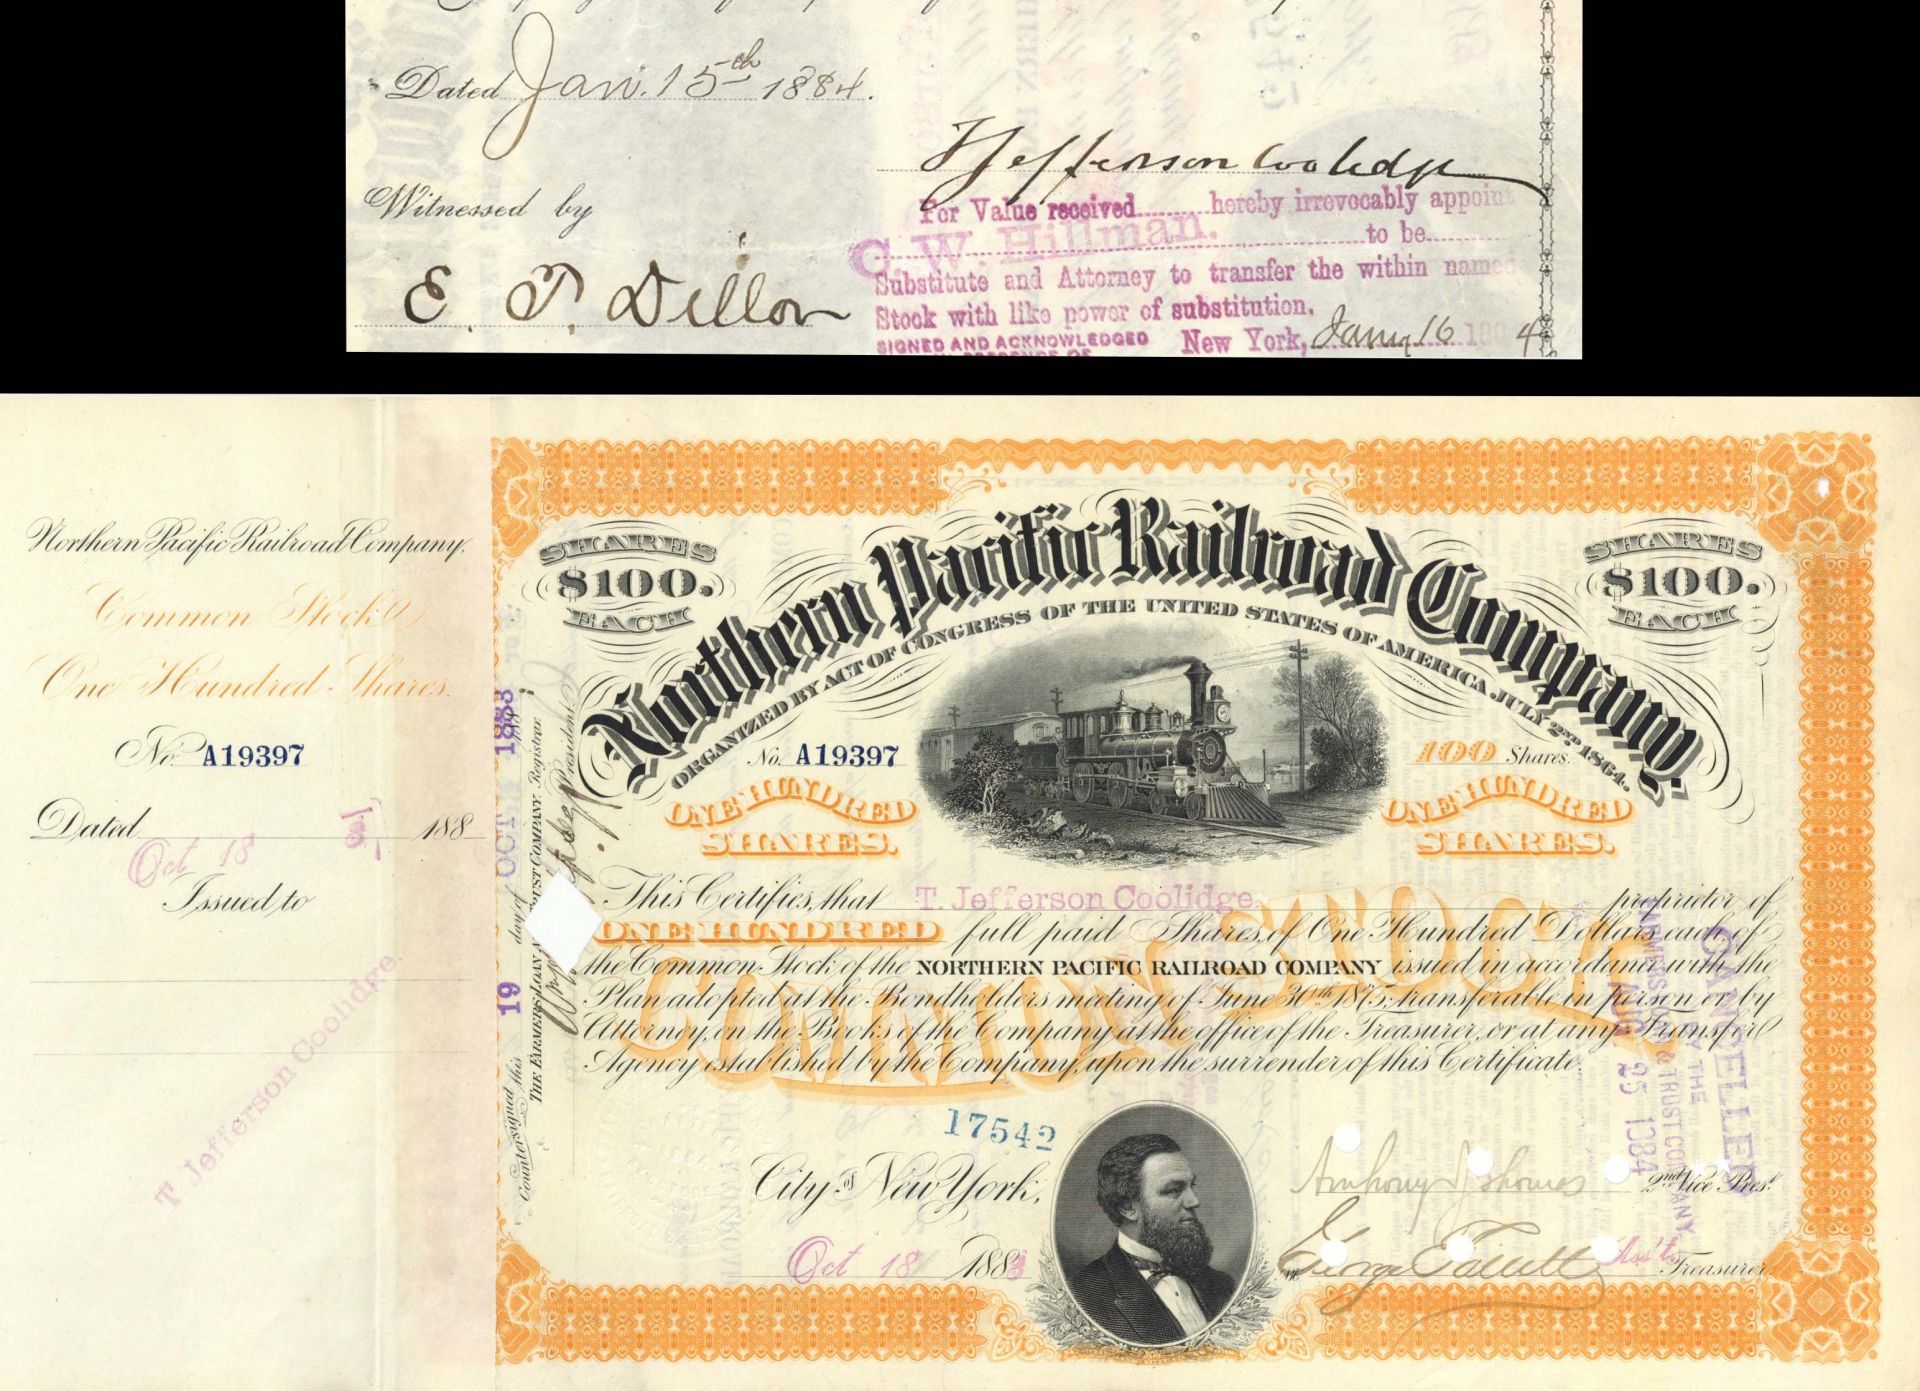 Dated Jan. 15th 1884.
T Jefferson Coolidge
Witnessed by
For Value received hereby irrevocably appoint
C. W. Hillman. to be
Substitute and Attorney to transfer the within named
Stock with like power of substitution.
E. P. Dillon
SIGNED AND ACKNOWLEDGED New York, Jany 16 4
Northern Pacific Railroad Company.
Common Stock
One Hundred Shares.
No. A19397
Dated Oct 18 188
Issued to
T. Jefferson Coolidge.
Countersigned this 19 day of OCT 1883
THE FARMERS LOAN TRUST COMPANY. Registrar.
President
SHARES $100. EACH
SHARES $100. EACH
Northern Pacific Railroad Company.
ORGANIZED BY ACT OF CONGRESS OF THE UNITED STATES OF AMERICA JULY 2ND 1864.
No. A19397
100 Shares.
ONE HUNDRED SHARES.
ONE HUNDRED SHARES.
This Certifies, that T. Jefferson Coolidge. proprietor of
ONE HUNDRED full paid Shares, of One Hundred Dollars each, of
the Common Stock of the NORTHERN PACIFIC RAILROAD COMPANY issued in accordance with the
Plan adopted at the Bondholders meeting of June 30th 1875; transferable in person or by
Attorney, on the Books of the Company at the office of the Treasurer, or at any Transfer
Agency established by the Company, upon the surrender of this Certificate.
COMMON STOCK
CANCELLED
BY THE
FARMERS LOAN & TRUST COMPANY
AUG 25 1884
17542
City of New York,
Oct 18 1883
2nd Vice Prest.
George
Ass't Treasurer